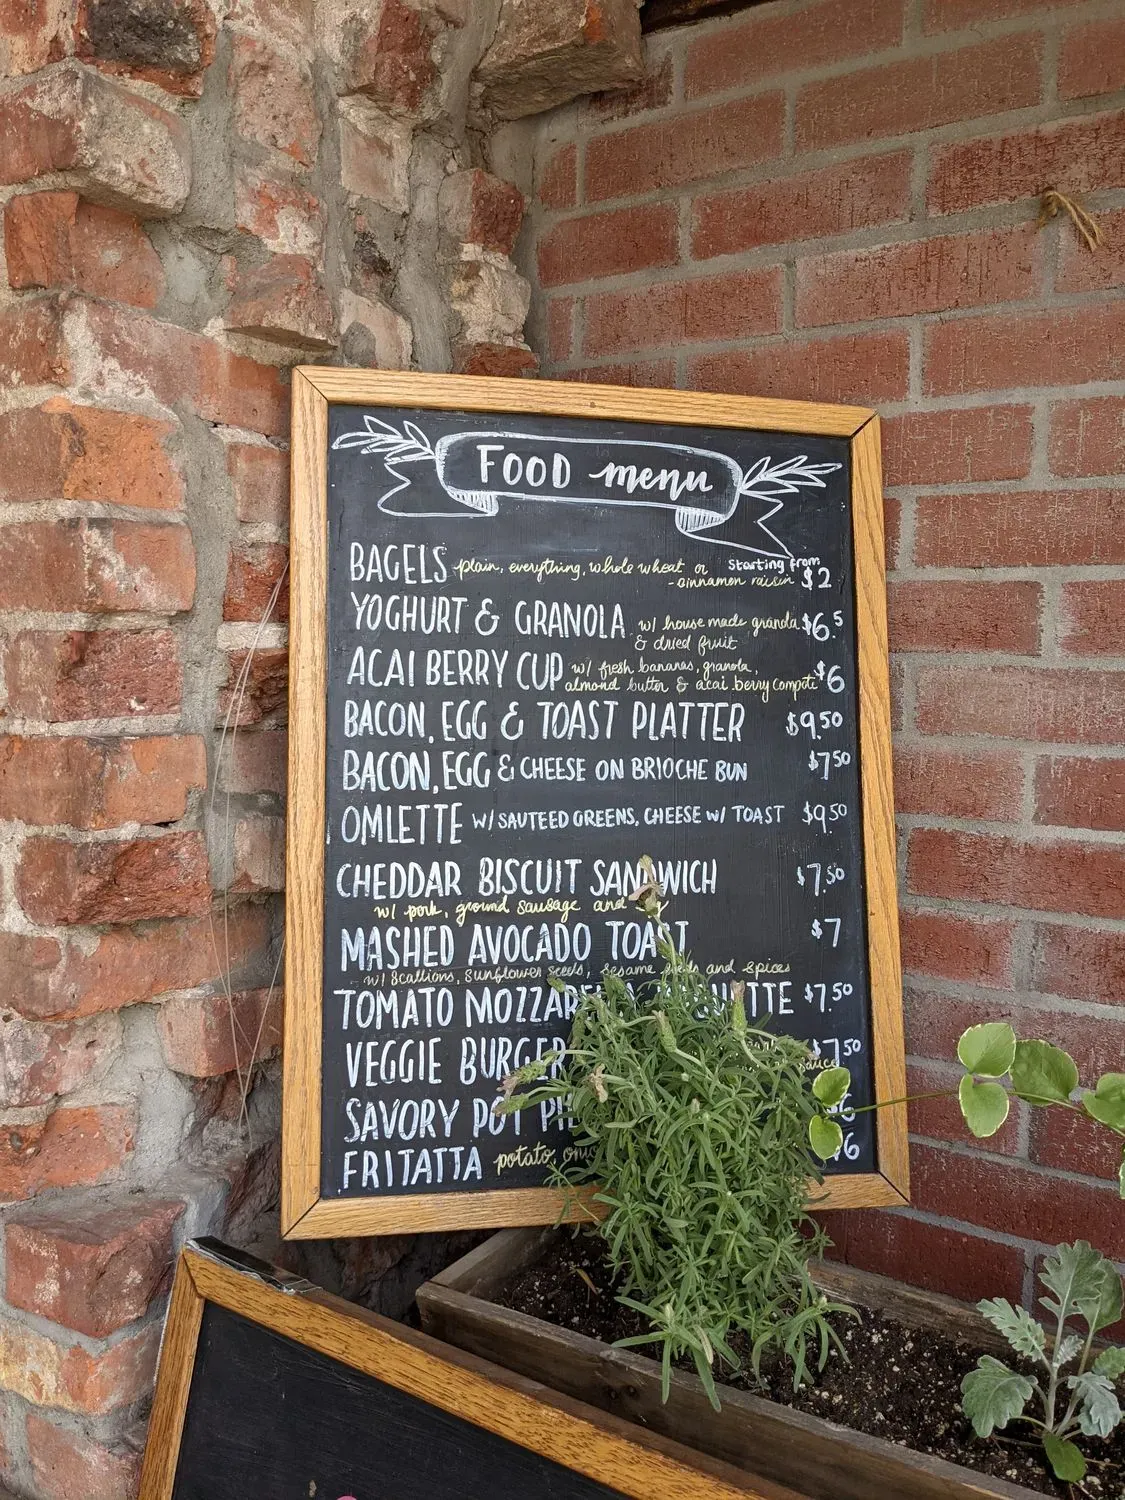 FOOD menu
BAGELS plain, everything, whole wheat or Starting from
- cinnamen raisin $2
YOGHURT & GRANOLA w/ house made granola $6.5
& dried fruit
ACAI BERRY CUP w/ fresh bananas, granola, $6
almond butter & acai berry compote
BACON, EGG & TOAST PLATTER $9.50
BACON, EGG & CHEESE ON BRIOCHE BUN $7.50
OMLETTE W/ SAUTEED GREENS, CHEESE W/ TOAST $9.50
CHEDDAR BISCUIT SANDWICH $7.50
w/ pork, ground sausage and
MASHED AVOCADO TOAST $7
w/ Scallions, Sunflower seeds, sesame seeds and spices
TOMATO MOZZARELLA $7.50
VEGGIE BURGER $7.50
sauce
SAVORY POT PIE $6
FRITATTA potato, $6